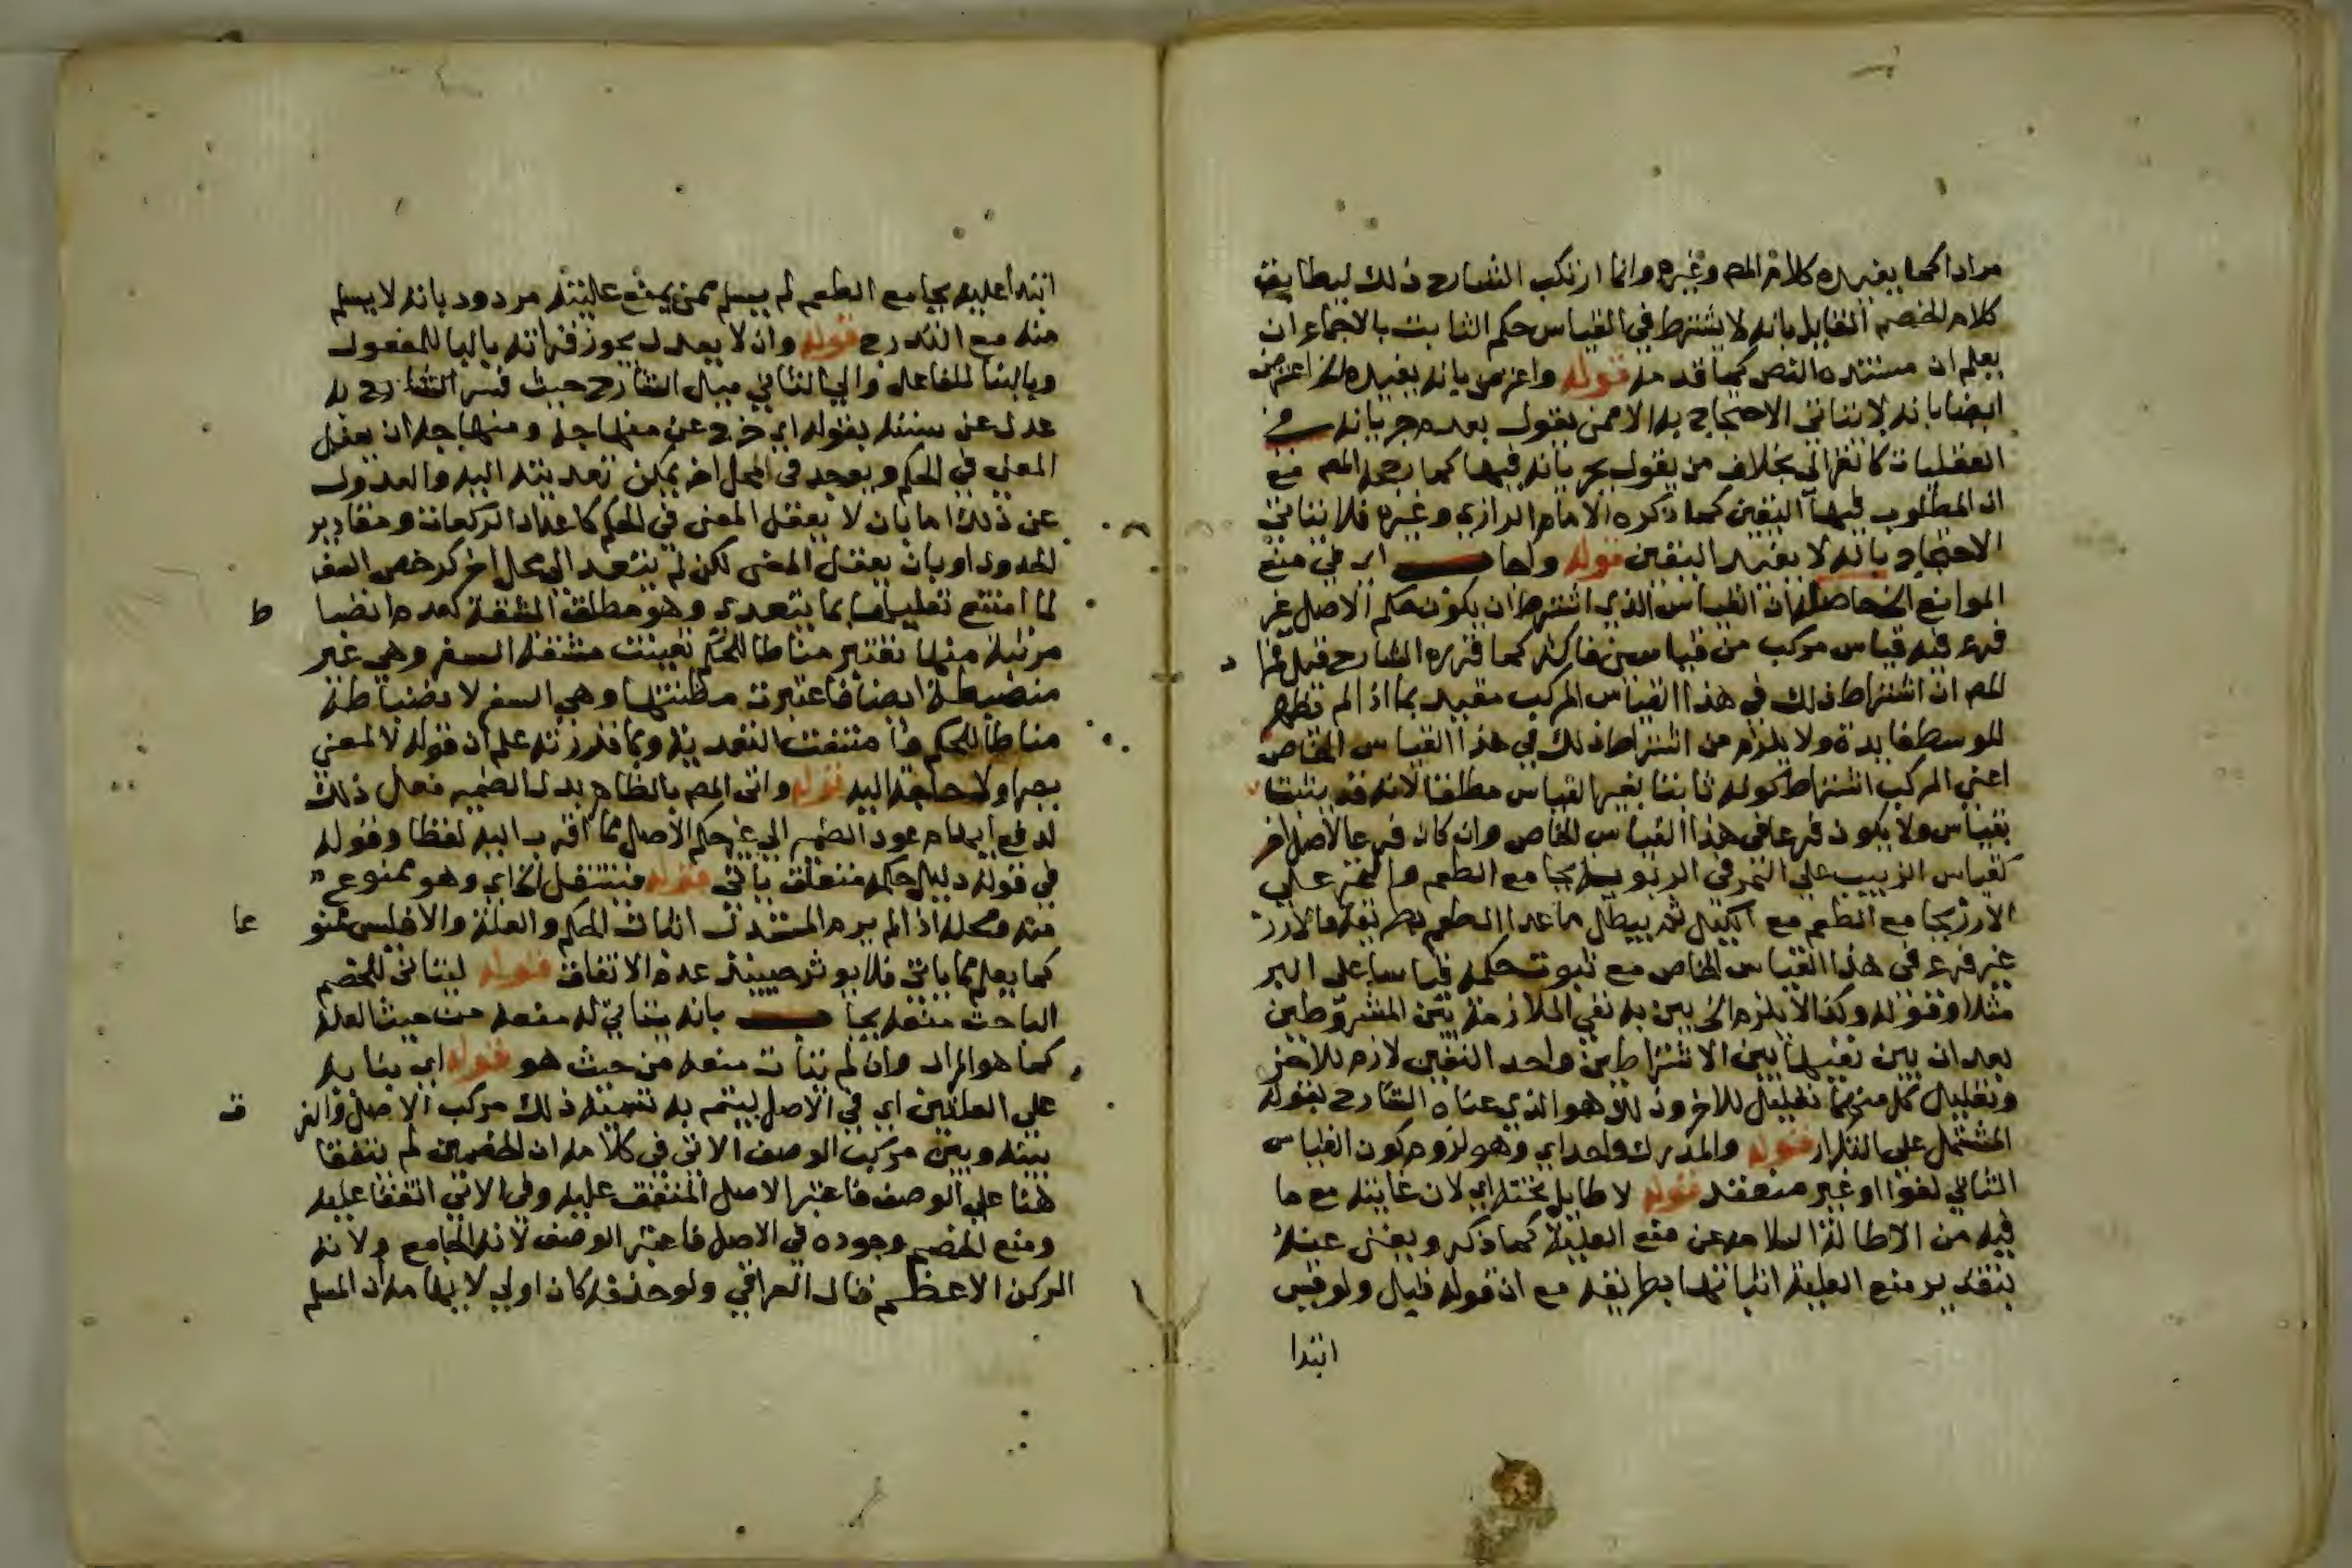 مرادا كما يفيده كلام المص وغيره وانما ارتكب الشارح ذلك ليطابق
كلام الخصم القايل بانه لا يشترط في القياس حكم الثابت بالاجماع ان
يعلم ان مستنده النص كما قدمه قوله واعترض بانه يفيده الخ اعترض
ايضا بانه لا يتاتى الاحتجاج به الا ممن يقول بعدم جريانه في
العقليات كالغزالي بخلاف من يقول بجريانه فيها كما رجحه المص مع
ان المطلوب فيها اليقين كما ذكره الامام الرازي وغيره فلا يتاتى
الاحتجاج بانه لا يفيد اليقين قوله ولها اي في منع
الموانع الخ حاصله ان القياس الذي اشترط ان يكون حكم الاصل غير
فرع فيه قياس مركب من قياسين فاكثر كما قرره الشارح قبل فمراد
المص ان اشتراط ذلك في هذا القياس المركب مقيد بما اذا لم تظهر
للوسط فايدة ولا يلزم من اشتراط ذلك في هذا القياس الخاص
اعني المركب اشتراط كونه ثابتا بغير القياس مطلقا لانه قد يثبت
بقياس ولا يكون فرعا في هذا القياس الخاص وان كان فرعا لاصل اخر
كقياس الزبيب على التمر في الربوية بجامع الطعم والتمر على
الارز بجامع الطعم مع الكيل ثم يبطل ما عدا الطعم بطريقه فالارز
غير فرع في هذا القياس الخاص مع ثبوت حكمه قياسا على البر
مثلا وقوله وكذا لا يلزم الخ بين به نفي الملازمة بين المشروطين
بعد ان بين نفيها بين الاشتراطين واحد النفيين لازم للاخر
وتعليل كل منهما تعليل للاخر وذلك هو الذي عناه الشارح بقوله
المشتمل على التكرار قوله والمدرك واحد اي وهو لزوم كون القياس
الثاني لغوا او غير منعقد قوله لا طايل تحته اي لان غايته مع ما
فيه من الاطالة السلامة عن منع العلية كما ذكر ويغني عنه
بتقدير منع العلية اثباتها بطريقه مع ان قوله قبل ولو قيس
ابتدا
ابتدا عليه بجامع الطعم لم يسلم ممن يمنع عليته مردود بانه لا يسلم
منه مع التدرج قوله وان لا يعدل يجوز قراته بالبنا للمفعول
وبالبنا للفاعل والى الثاني ميل الشارح حيث فسر الشارح به
عدل عن سننه بقوله اي خرج عن منهاجه ومنهاجه ان يعقل
المعنى في الحكم ويوجد في محل اخر يمكن تعديته اليه والعدول
عن ذلك اما بان لا يعقل المعنى في الحكم كاعداد الركعات ومقادير
الحدود او بان يعقل المعنى لكن لم يتعد الى محل اخر كرخص السفر
لما امتنع تعليلها بما يتعدى وهو مطلق المشقة لعدم انضباط
مرتبة منها تعتبر مناطا للحكم تعينت مشقة السفر وهي غير
منضبطة ايضا فاعتبرت مظنتها وهي السفر لانضباطه
مناطا للحكم فامتنعت التعدية وبما قررته علم ان قوله لا لمعنى
يجرا ولا حاجة اليه قوله واتى المص بالظاهر بدل الضمير فعل ذلك
لدفع ايهام عود الضمير الى غير حكم الاصل مما اقرب اليه لفظا وقوله
في قوله دليل حكمه متعلق باتى قوله فينتقل الخ اي وهو ممنوع
منه ومحله اذا لم يرد المستدل اثبات الحكم والعلة والا فليس ممنوعا
كما يعلم مما ياتي فلا يوثر حينئذ عدم الاتفاق قوله ليتاتى للخصم
الباحث منعه بانه يتاتى له منعه من حيث العلة
كما هو المراد وان لم يتات منعه من حيث هو قوله اي بنا به
على العلتين اي في الاصل ليتم به تسمية ذلك مركب الاصل والفرق
بينه وبين مركب الوصف الاتي في كلامه ان الخصمين لم يتفقا
هنا على الوصف فاعتبر الاصل المتفق عليه وفي الاتي اتفقا عليه
ومنع الخصم وجوده في الاصل فاعتبر الوصف لانه الجامع ولانه
الركن الاعظم قال العراقي ولو حذفه كان اولى لايهامه ان المسلم